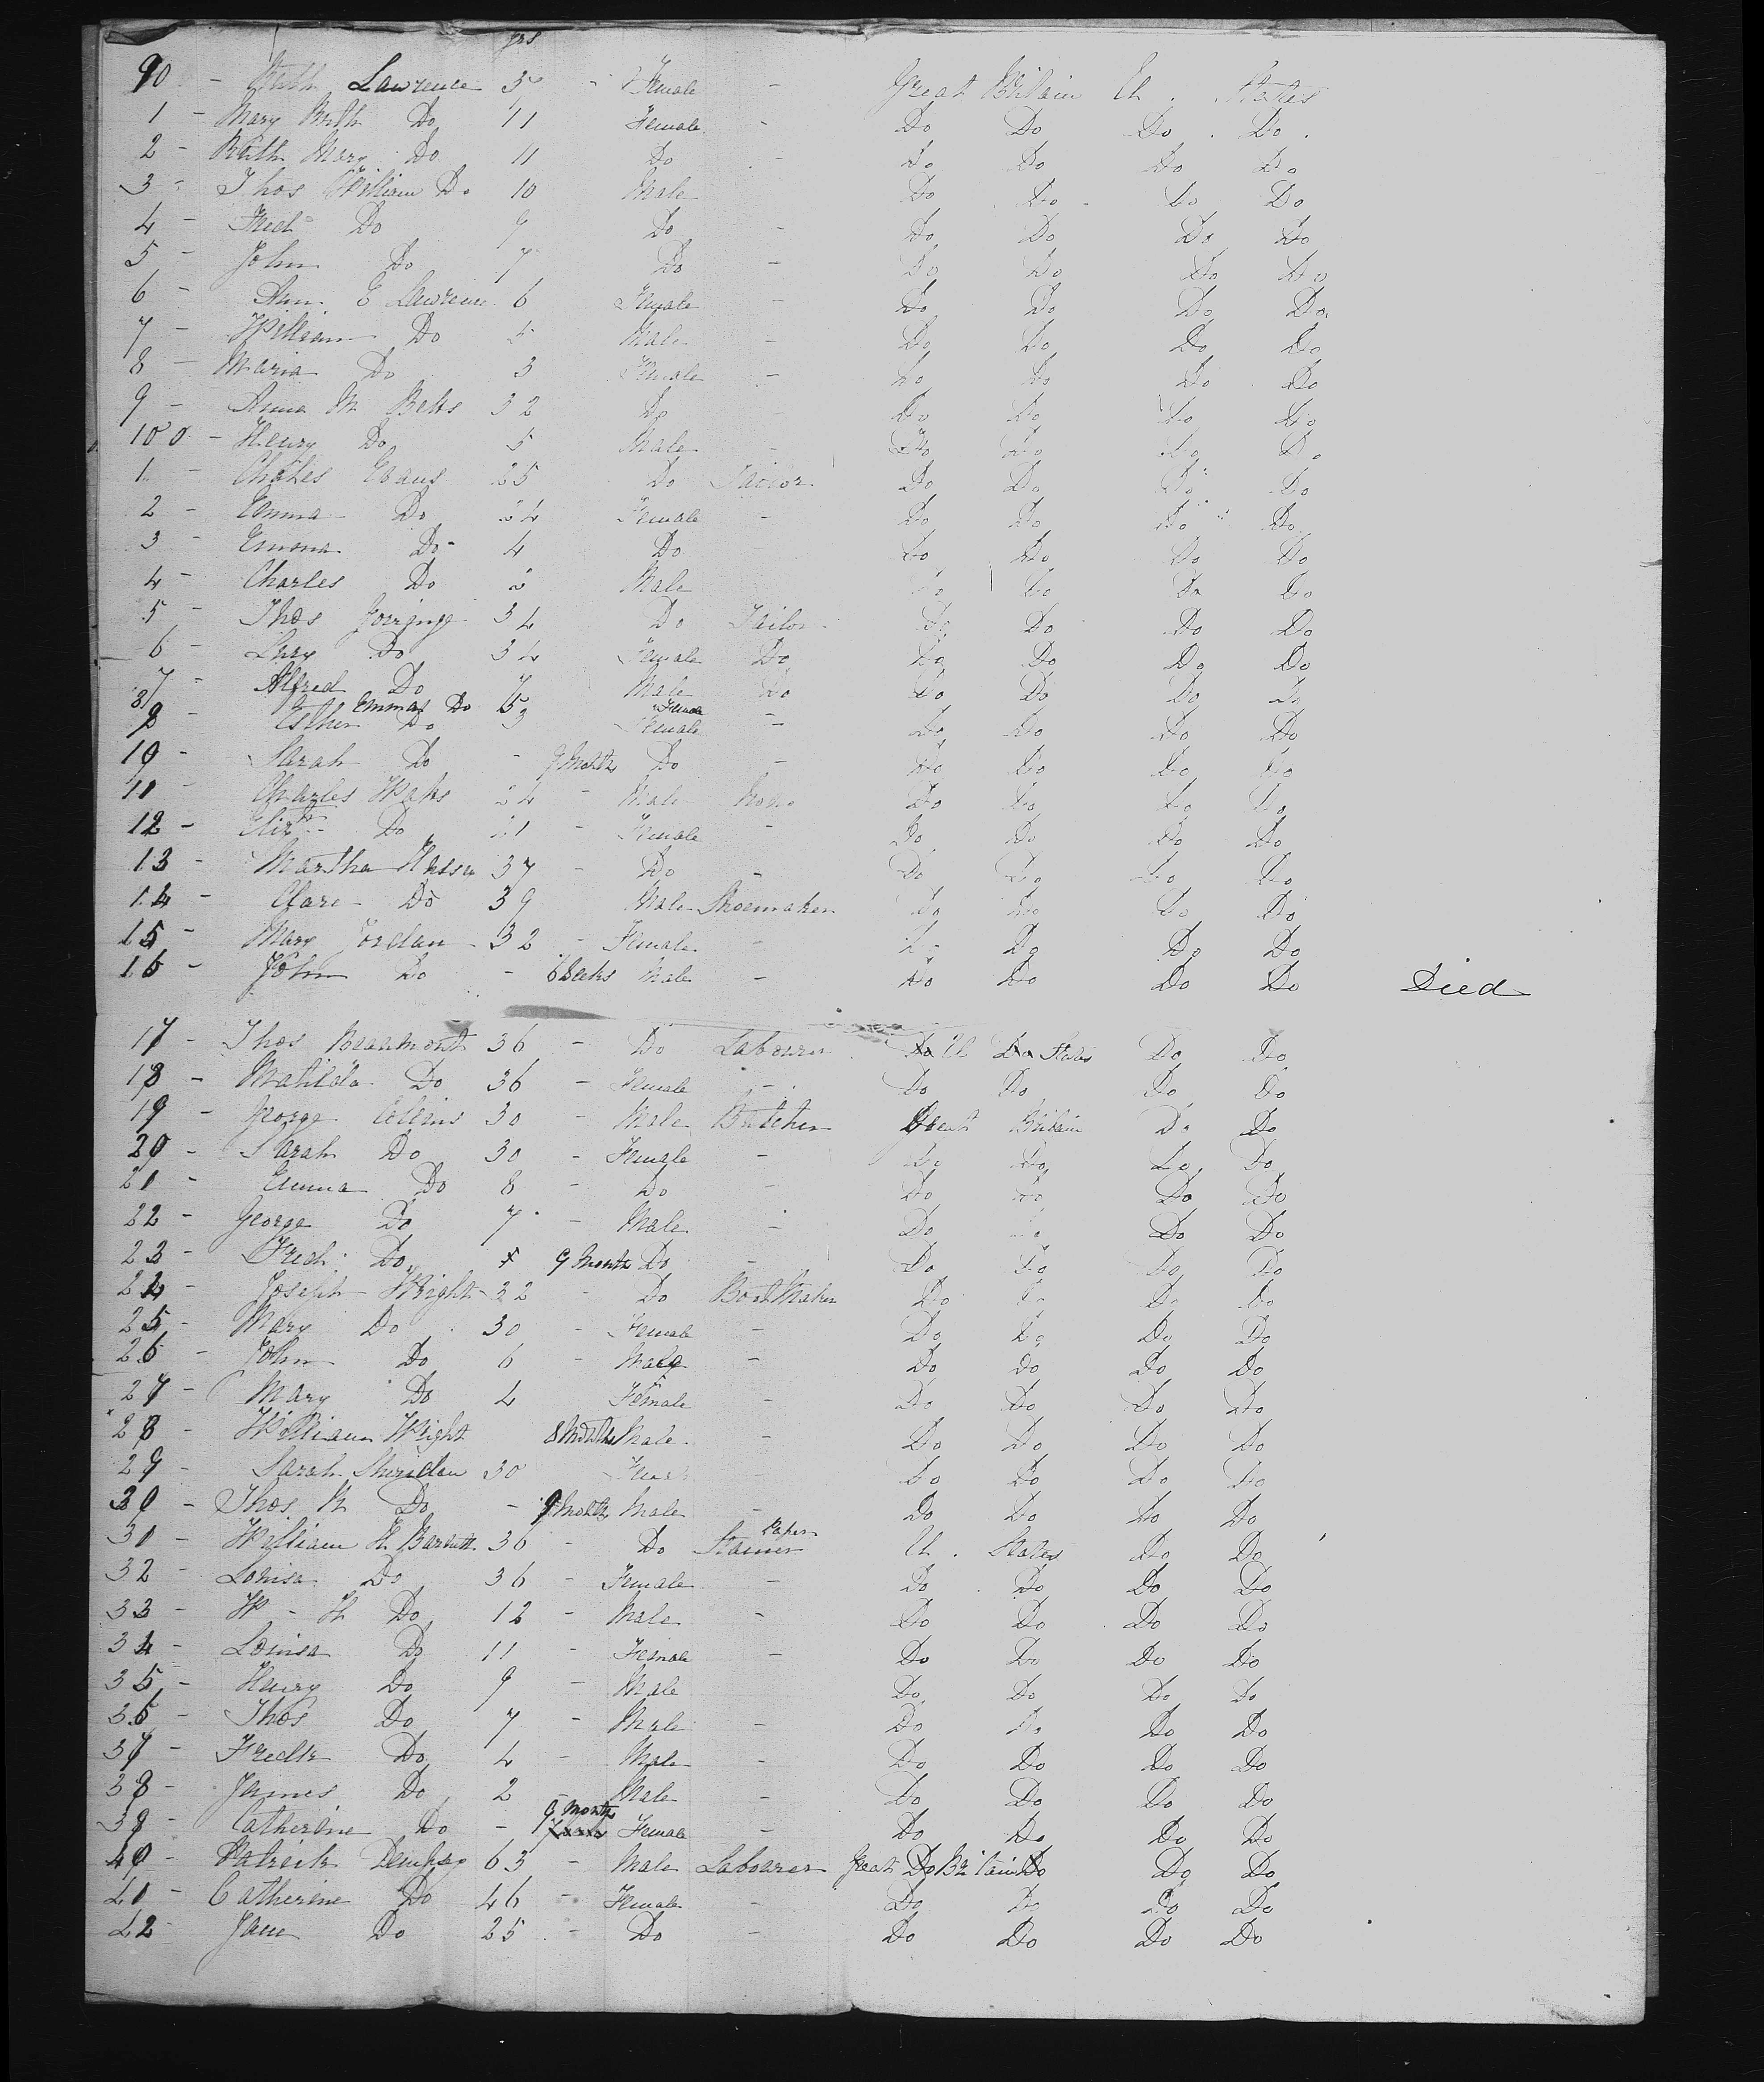 yrs
90 - Ruth Lawrence 3 - Female - Great Britain U . States
1 - Mary Ruth Do 11 Female - Do Do Do . Do .
2 - Ruth Mary Do 11 Do - Do Do Do Do
3 - Thos William Do 10 Male Do Do Do Do
4 - Fred Do 9 Do - Do Do Do Do
5 - John Do 7 Do - Do Do Do Do
6 - Ann E Lawrence 6 Female - Do Do Do Do
7 - William Do 5 Male - Do Do Do Do
8 - Maria Do 3 Female - Do Do Do Do
9 - Anna M Betts 32 Do Do Do Do Do
100 - Henry Do 5 Male - Do Do Do Do
1 - Charles Evans 25 Do Tailor Do Do Do Do
2 - Emma Do 24 Female - Do Do Do Do
3 - Emma Do - 4 Do Do Do Do Do
4 - Charles Do 2 Male Do Do Do Do
5 - Thos Gorringe 34 Do Tailor Do Do Do Do
6 - Lucy Do 34 Female Do Do Do Do Do
7 - Alfred Do 7 Male Do Do Do Do Do
8 Emma Do 5 Female
9 - Esther Do 3 Female - Do Do Do Do
10 - Sarah Do - 9 Month Do - Do Do Do Do
11 - Charles 24 - Male None Do Do Do Do
12 - Eliz Do 21 - Female - Do Do Do Do
13 - Martha 37 - Do - Do Do Do Do
14 - Do 39 Male Shoemaker Do Do Do Do
15 - Mary Jordan 32 - Female - Do Do Do Do
16 - John Do - 6 Weeks Male - Do Do Do Do Died
17 - Thos Beaumont 36 - Do Labourer U States Do Do
18 - Matilda Do 36 - Female - Do Do Do Do
19 - George Collins 30 - Male Butcher Great Britain Do Do
20 - Sarah Do 30 - Female - Do Do Do Do
21 - Emma Do 8 - Do - Do Do Do Do
22 - George Do 7 - Male - Do Do Do Do
23 - Fred Do 9 Month Do - Do Do Do Do
24 - Joseph Wright 32 - Do Boot Maker Do Do Do Do
25 - Mary Do 30 - Female - Do Do Do Do
26 - John Do 6 - Male - Do Do Do Do
27 - Mary Do 4 Female - Do Do Do Do
28 - William Wright 8 Months Male - Do Do Do Do
29 - Sarah Sheridan 30 Female Do Do Do Do
30 - Thos M Do - 9 Months Male - Do Do Do Do
31 - William H Barnett 36 - Do Paper Stainer U . States Do Do
32 - Louisa Do 36 - Female - Do Do Do Do
33 - W - H Do 12 - Male - Do Do Do Do
34 - Louisa Do 11 - Female - Do Do Do Do
35 - Henry Do 9 - Male Do Do Do Do
36 - Thos Do 7 - Male - Do Do Do Do
37 - Fredk Do 4 - Male - Do Do Do Do
38 - James Do 2 - Male - Do Do Do Do
39 - Catherine Do - 9 Month Female - Do Do Do Do
40 - Patrick Dempsey 63 - Male Labourer Great Britain Do Do
41 - Catherine Do 46 - Female - Do Do Do Do
42 - Jane Do 25 - Do - Do Do Do Do